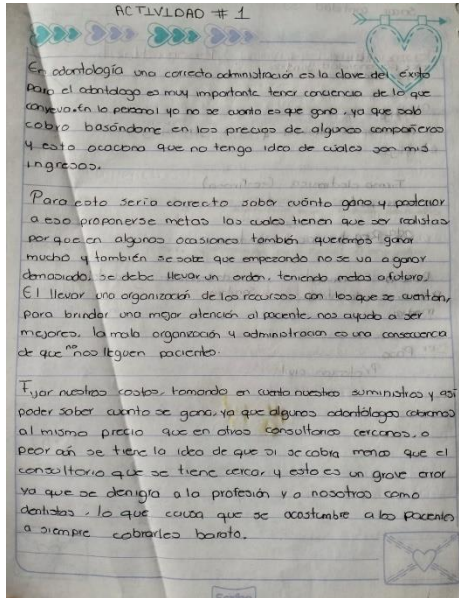 ACTIVIDAD # 1
En odontología una correcta administración es la clave del éxito
para el odontologo es muy importante tener conciencia de lo que
conyeva. En lo personal yo no se cuanto es que gano, ya que solo
cobro basándome en los precios de algunos compañeros
y esto ocaciona que no tenga idea de cuales son mis
ingresos.
Para esto seria correcto saber cuánto gano, y posterior
a eso proponerse metas las cuales tienen que ser realistas
porque en algunas ocasiones también queremos ganar
mucho y también se sabe que empezando no se va a ganar
demasiado, se debe llevar un orden, teniendo metas a futuro.
El llevar una organización de los recursos con los que se cuentan,
para brindar una mejor atención al paciente, nos ayuda a ser
mejores, la mala organización y administracion es una consecuencia
de que no nos lleguen paciente.
Fijar nuestros costos, tomando en cuenta nuestro suministros y asi
poder saber cuanto se gana, ya que algunos odontólogos cobramos
al mismo precio que en otros consultorios cercanos, o
peor aún se tiene la idea de que si se cobra menos que el
consultorio que se tiene cerca, y esto es un grave error
ya que se denigra a la profesión y a nosotros como
dentistas, lo que causa que se acostumbre a los pacientes
a siempre cobrarles barato.